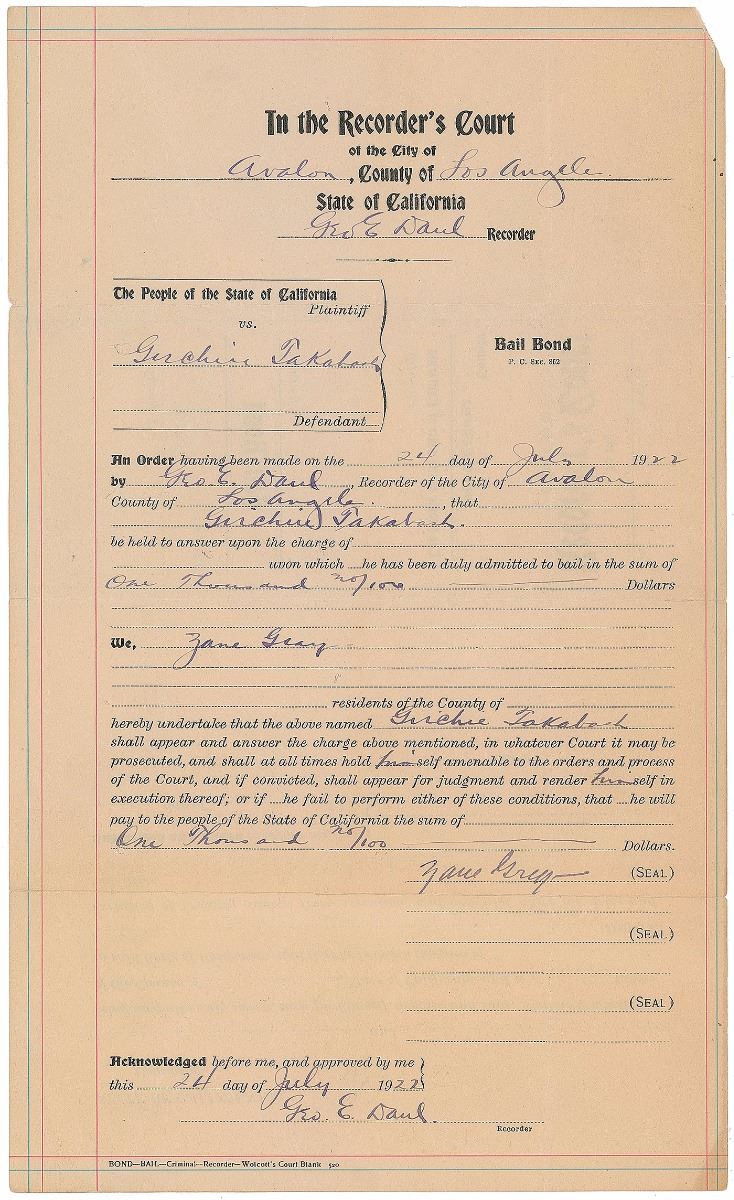 In the Recorder's Court
of the City of
Avalon, County of Los Angeles
State of California
Geo E Daul Recorder
The People of the State of California
Plaintiff
vs.
Takabash
Defendant
Bail Bond
P. C. Sec. 862
An Order having been made on the 24 day of July 1922
by Geo. E. Daul, Recorder of the City of Avalon
County of Los Angeles, that
Takabash.
be held to answer upon the charge of
upon which he has been duly admitted to bail in the sum of
One Thousand no/100 Dollars
We, Zane Grey
residents of the County of
hereby undertake that the above named Takabash
shall appear and answer the charge above mentioned, in whatever Court it may be
prosecuted, and shall at all times hold himself amenable to the orders and process
of the Court, and if convicted, shall appear for judgment and render himself in
execution thereof; or if he fail to perform either of these conditions, that he will
pay to the people of the State of California the sum of
One Thousand no/100 Dollars.
Zane Grey (SEAL)
(SEAL)
(SEAL)
Acknowledged before me, and approved by me
this 24 day of July 1922
Geo. E. Daul.
Recorder
BOND—BAIL—Criminal—Recorder—Wolcott's Court Blank 520